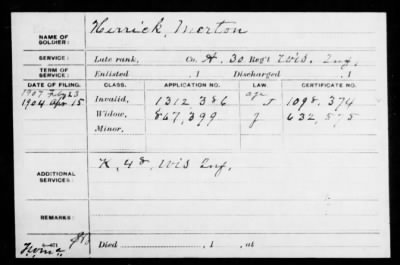 NAME OF SOLDIER: Herrick, Merton
SERVICE: Late rank, Co. H. 30 Reg't Wis. Inf.
TERM OF SERVICE: Enlisted , 1 Discharged , 1
DATE OF FILING. CLASS. APPLICATION NO. LAW. CERTIFICATE NO.
1907 Feby 23
1904 Apr. 15 Invalid, 1312,386 age 1098,374
Widow, 867,399 632,575
Minor,
ADDITIONAL SERVICES: K, 48, Wis Inf.
REMARKS:
Died , 1 , at